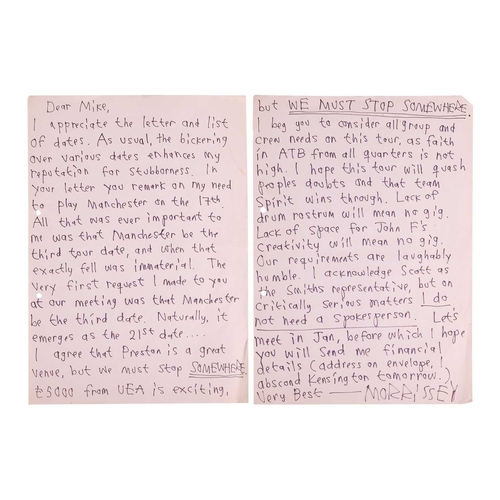 Dear Mike,
I appreciate the letter and list
of dates. As usual, the bickering
over various dates enhances my
reputation for Stubborness. In
your letter you remark on my need
to play Manchester on the 17th.
All that was ever important to
me was that Manchester be the
third tour date, and when that
exactly fell was immaterial. The
very first request I made to you
at our meeting was that Manchester
be the third date. Naturally, it
emerges as the 21st date....
I agree that Preston is a great
venue, but we must stop SOMEWHERE.
£5000 from UEA is exciting,
but WE MUST STOP SOMEWHERE
I beg you to consider all group and
crew needs on this tour, as faith
in ATB from all quarters is not
high. I hope this tour will quash
peoples doubts and that team
Spirit wins through. Lack of
drum rostrum will mean no gig.
Lack of space for John F's.
Creativity will mean no gig.
Our requirements are laughably
humble. I acknowledge Scott as
the Smiths representative, but on
critically serious matters I do
not need a spokesperson. Let's
meet in Jan, before which I hope
you will Send me financial
details (address on envelope,
abscond Kensington tomorrow!)
Very Best — MORRISSEY